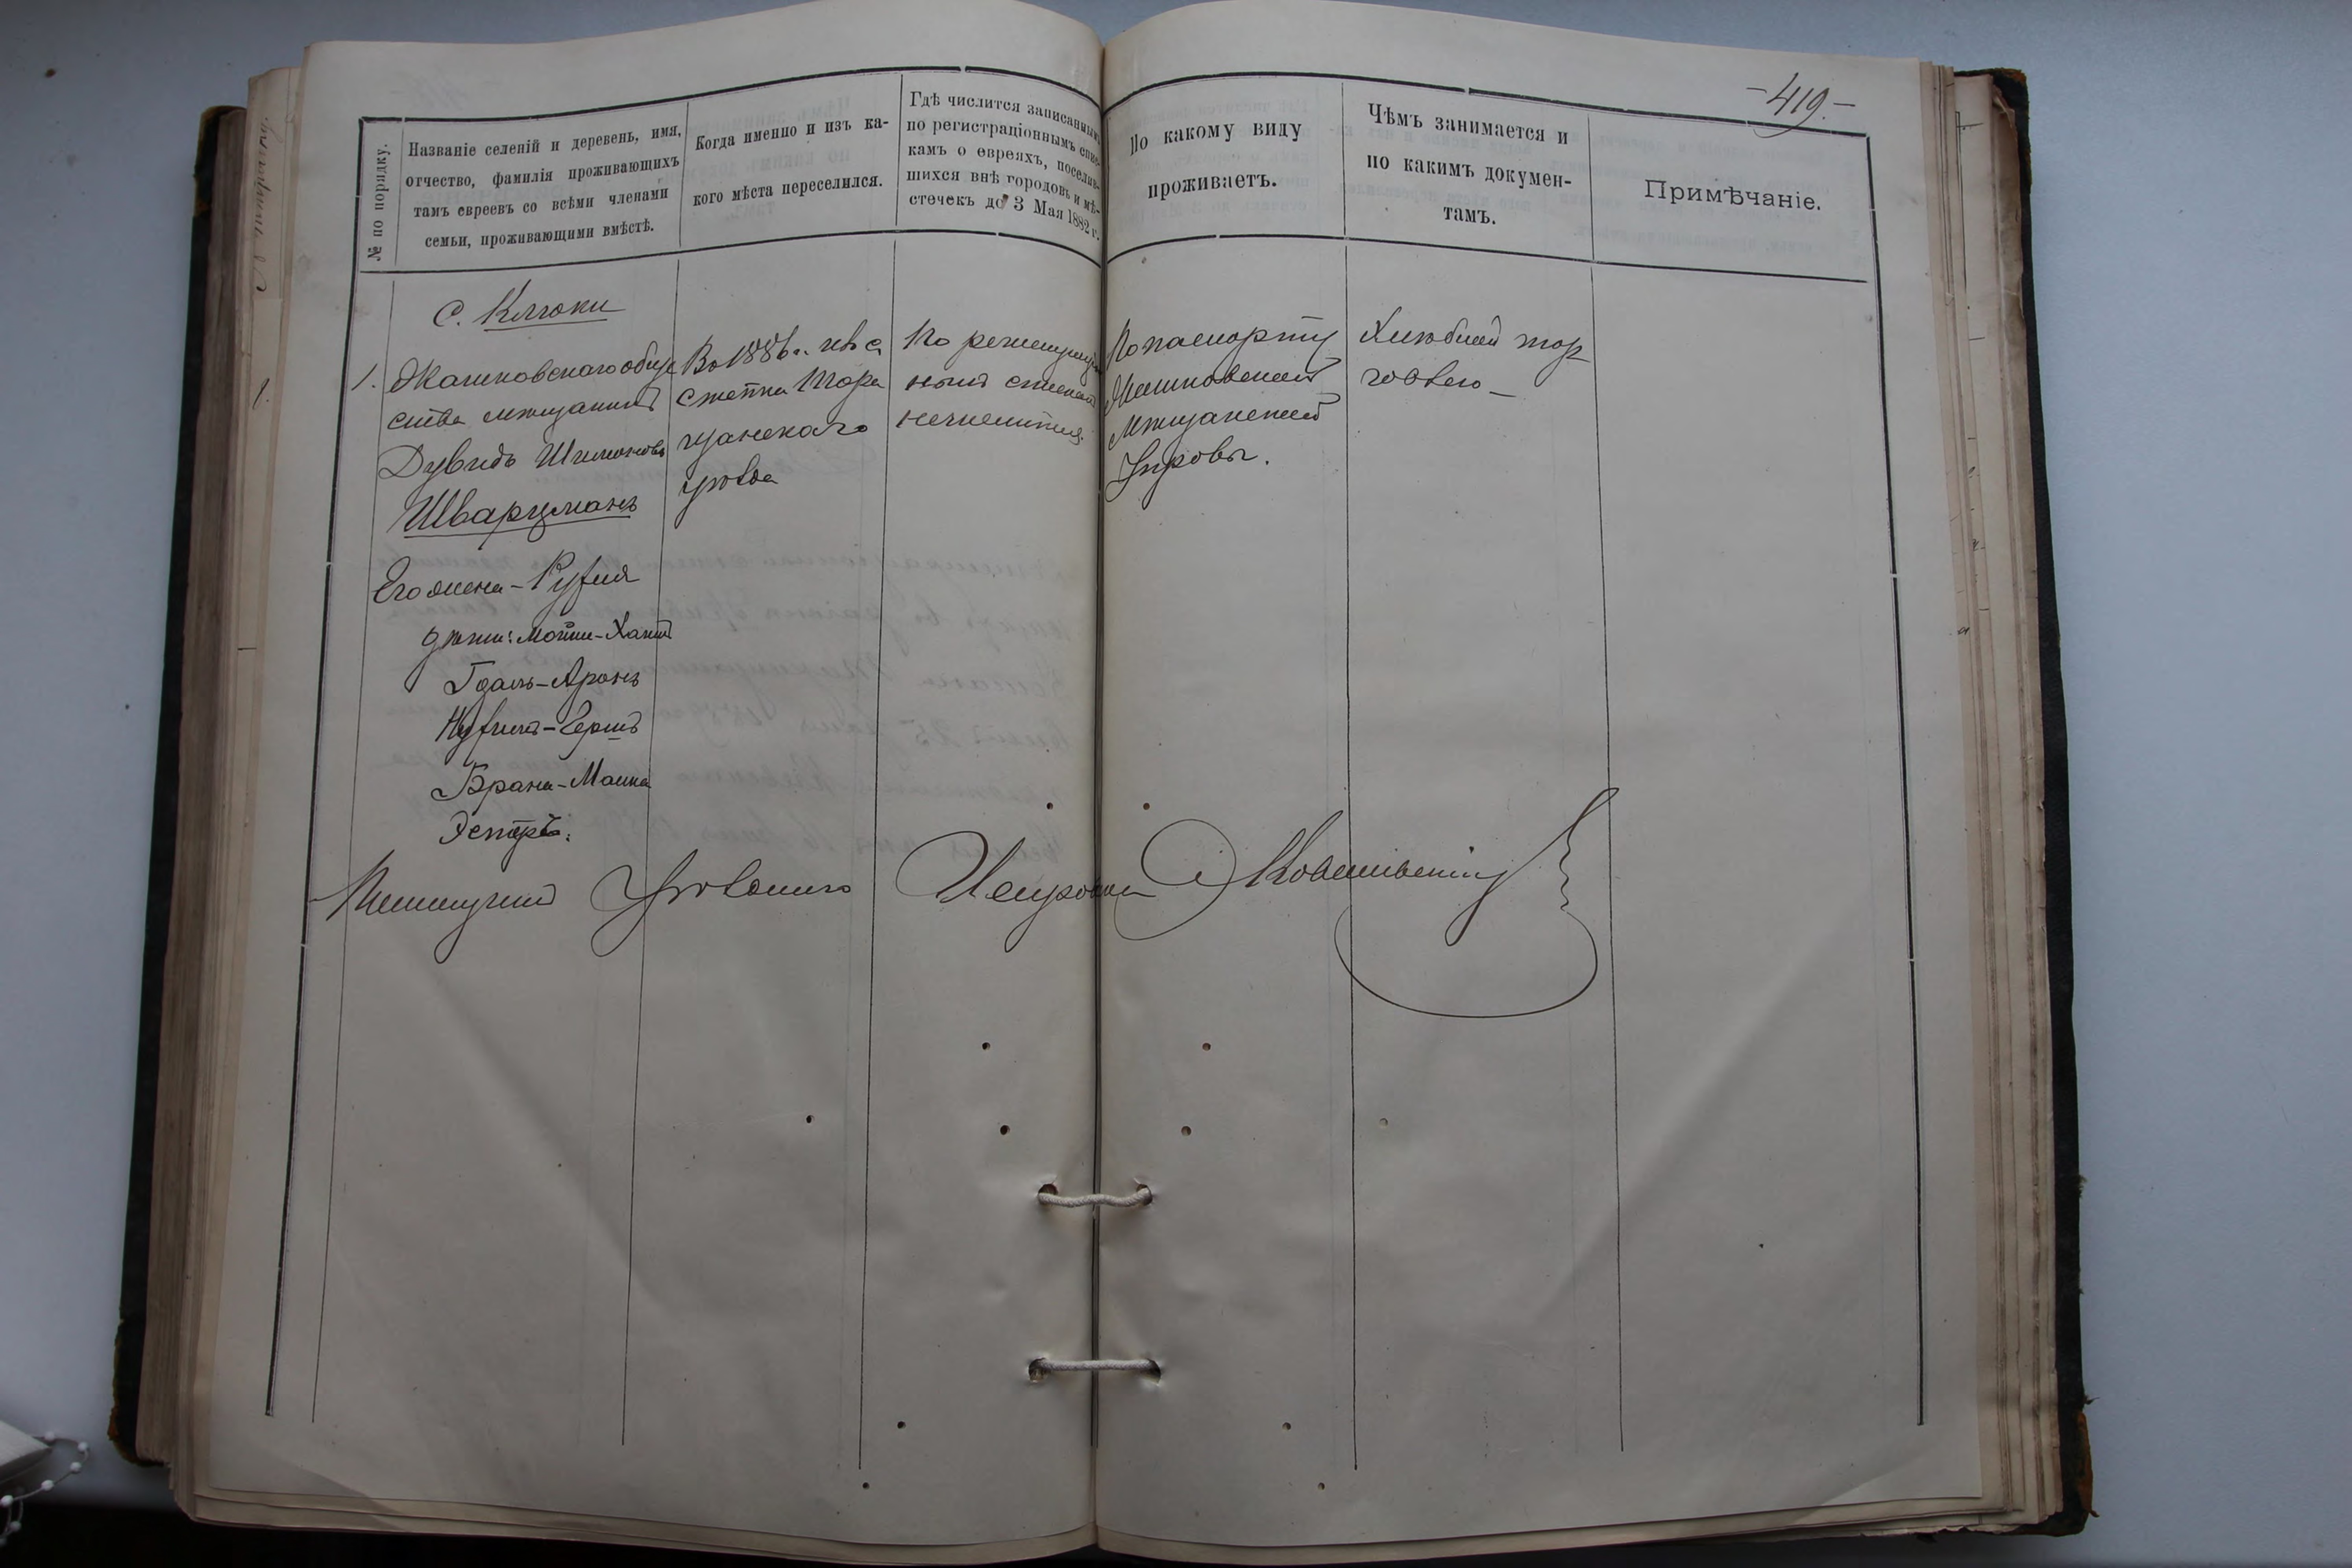 -419.-
№ по порядку.
Названіе селеній и деревень, имя,
отчество, фамилія проживающихъ
тамъ евреевъ со всѣми членами
семьи, проживающими вмѣстѣ.
Когда именно и изъ ка-
кого мѣста переселился.
Гдѣ числится записаннымъ
по регистраціоннымъ спис-
камъ о евреяхъ, поселив-
шихся внѣ городовъ и мѣ-
стечекъ до 3 Мая 1882 г.
По какому виду
проживаетъ.
Чѣмъ занимается и
по какимъ докумен-
тамъ.
Примѣчаніе.
с. Клюки
1.
Жашковскаго обще
ства мѣщанинъ
Дувидъ Шимоновъ
Шварцманъ
Его жена - Руфля
дѣти: Мотти-Хаимъ
Гдаль-Аронъ
-Гершъ
Брана-Малка
Эстеръ.
Въ 1886 г. изъ с
Тара
щанскаго
уѣзда
По регистраціон
нымъ спискамъ
нечислится.
По паспорту
Жашковской
мѣщанской
Управы.
Хлѣбной тор
говлею -
Полицейскій Урядникъ